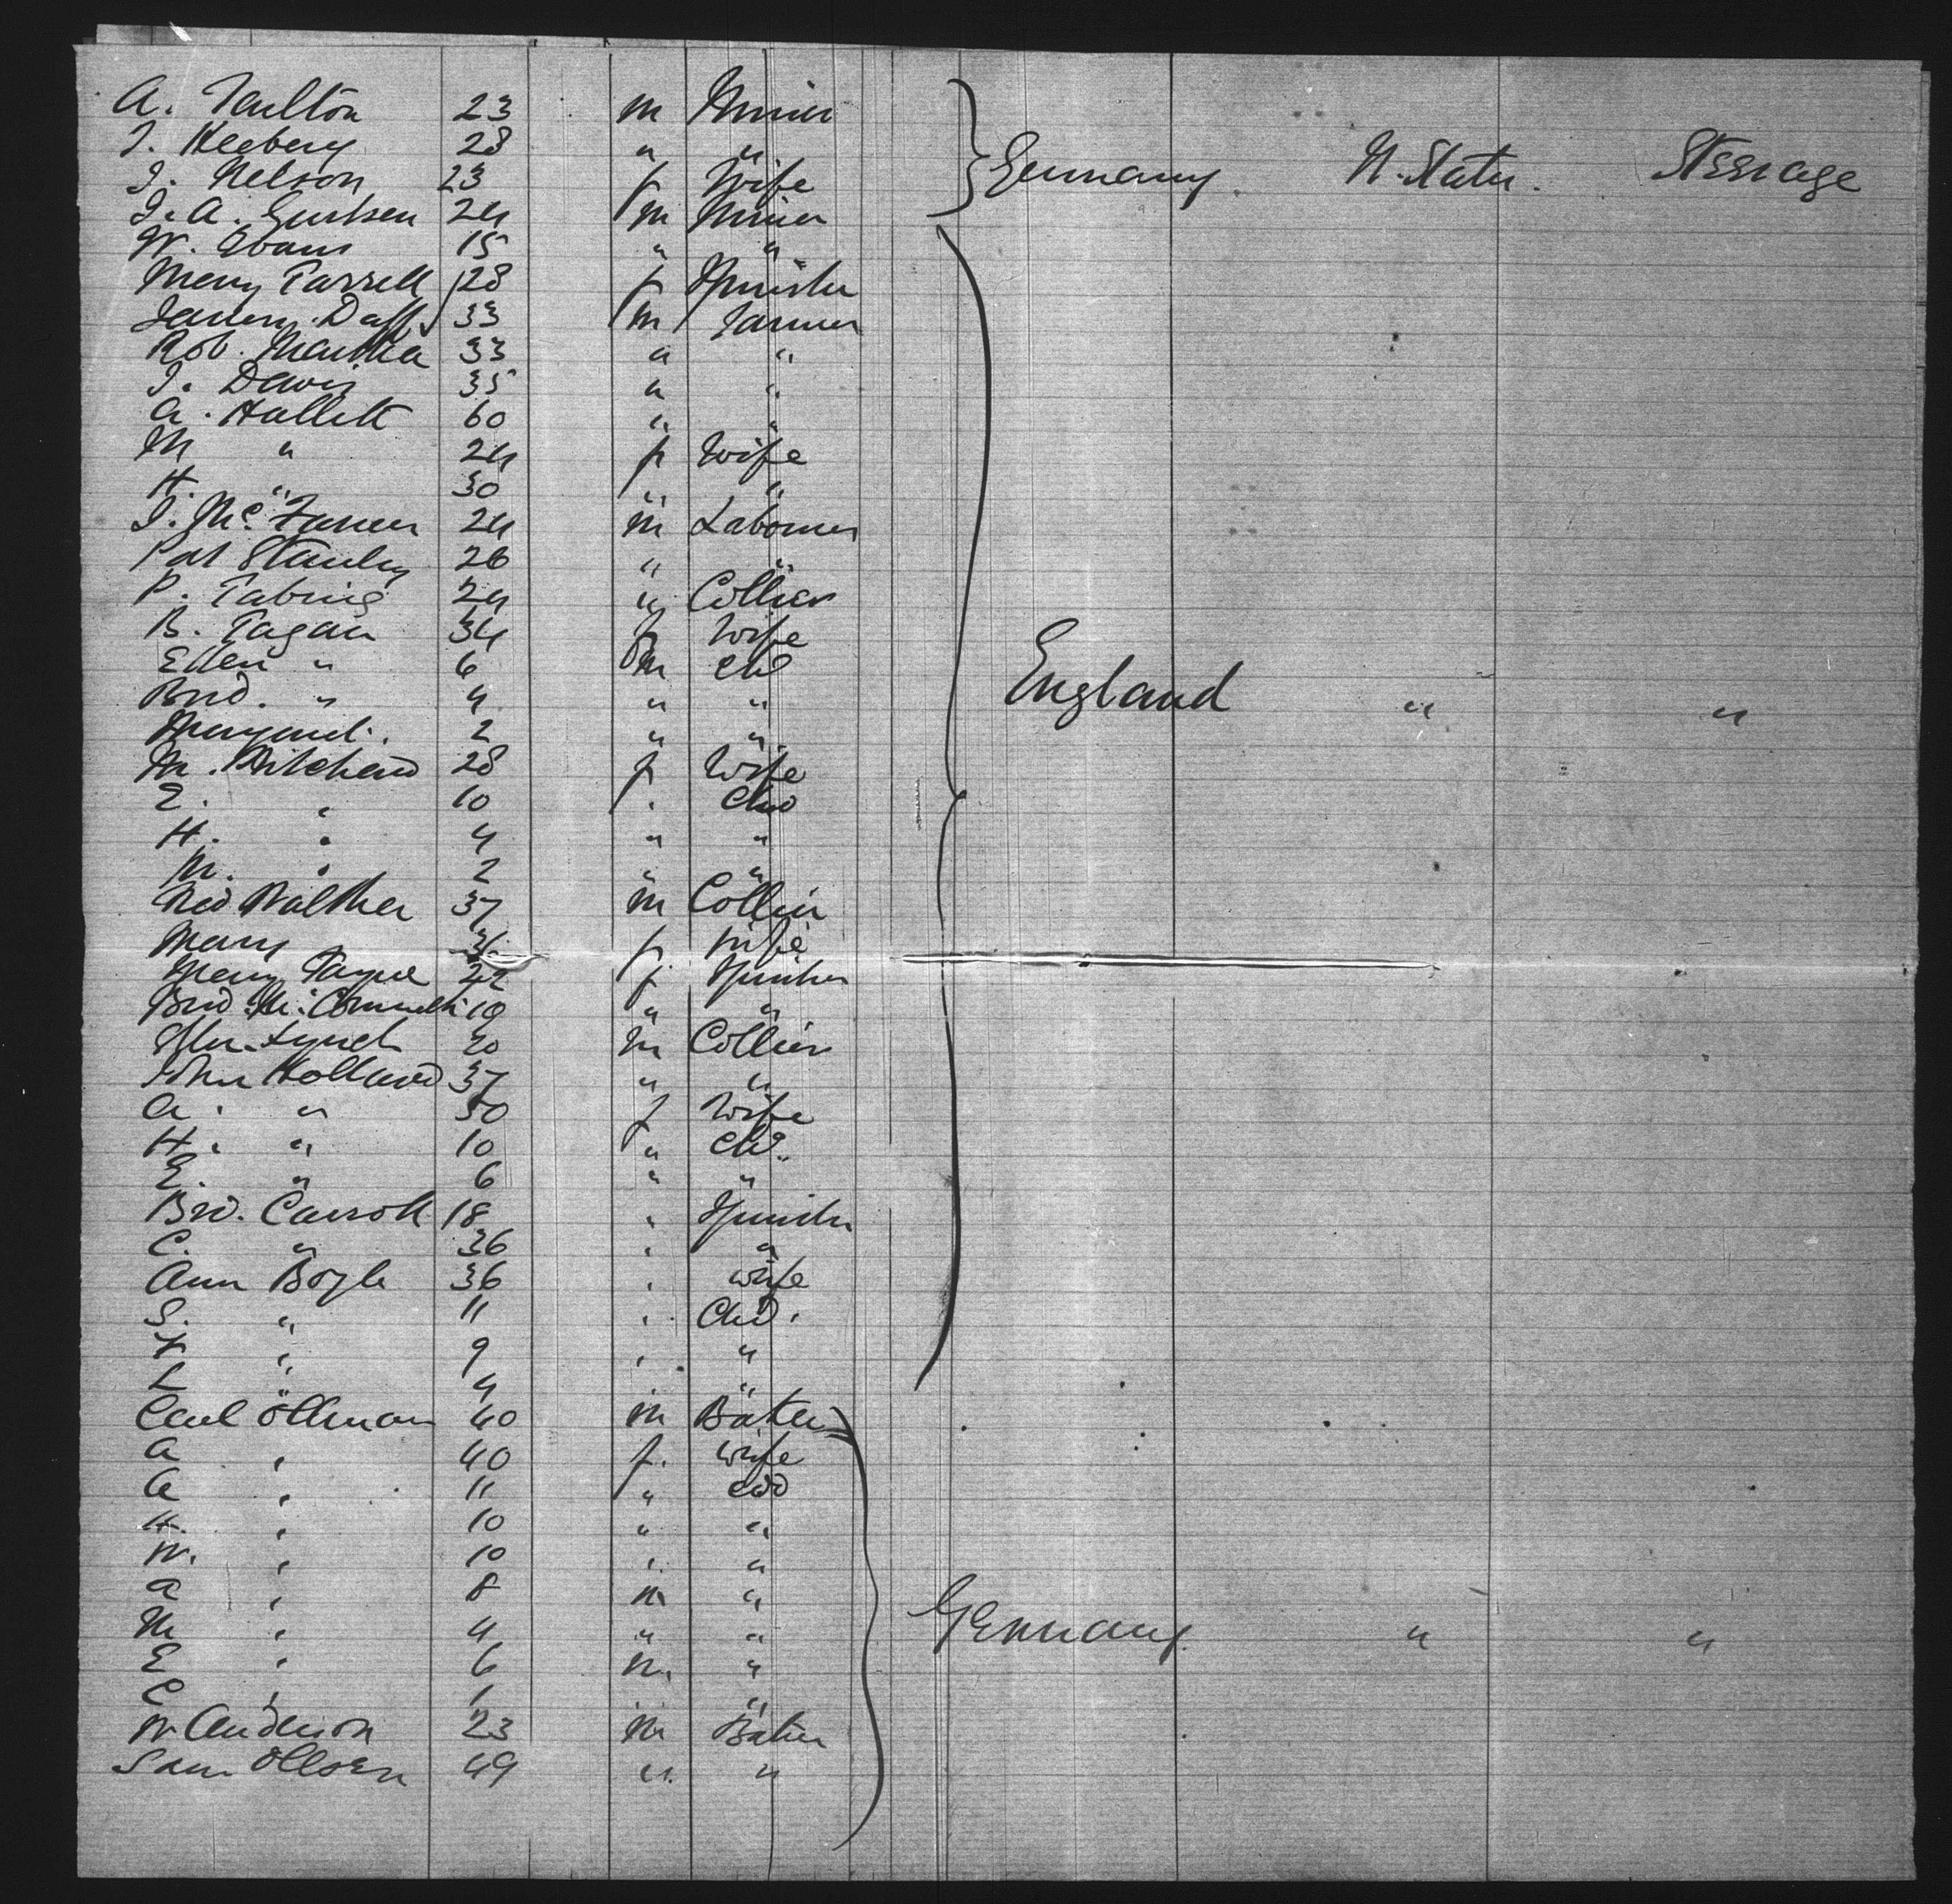 A. Faulton 23 m Miner
J. Kleberg 28 " "
J. Nelson 23 f Wife Germany U. States. Steerage
J. A. Gustsen 24 m Miner
W. Evans 15 " "
Mary Farrell 28 f Spinster
James Duffy 33 m Farmer
Rob. 33 " "
J. Davis 35 " "
A. Hallett 60 " "
M " 24 f Wife
H. " 30 " "
J. Mc 24 m Labourer
Pat Stanley 26 " "
P. 24 " Collier
B. Fagan 34 f Wife
Ellen " 6 m chd England " "
Brid. " 4 " "
Margaret. 2 " "
M. Pritchard 28 f Wife
E. " 10 " Chd
H. " 4 " "
M. " 2 " "
Ned Walker 37 m Collier
Mary f wife
Mary Payne 22 f Spinster
Brid. Mc. 19 " "
Lynch 20 m Collier
John Holland 37 " "
A. " 30 f Wife
H. " 10 " chd.
E. " 6 " "
Brd. Carroll 18 " Spinster
C. " 36 " "
Ann Boyle 36 " wife
S. " 11 " Chd.
" 9 " "
L " 4 " "
Carl Öllman 40 m Baker
A " 40 f. wife
A " 11 " chd
H. " 10 " "
W. " 10 " "
A " 8 m "
M " 4 " " Germany " "
E " 6 m. "
C " 1 "
W Anderson 23 m Baker
Sam Ollsen 49 " "